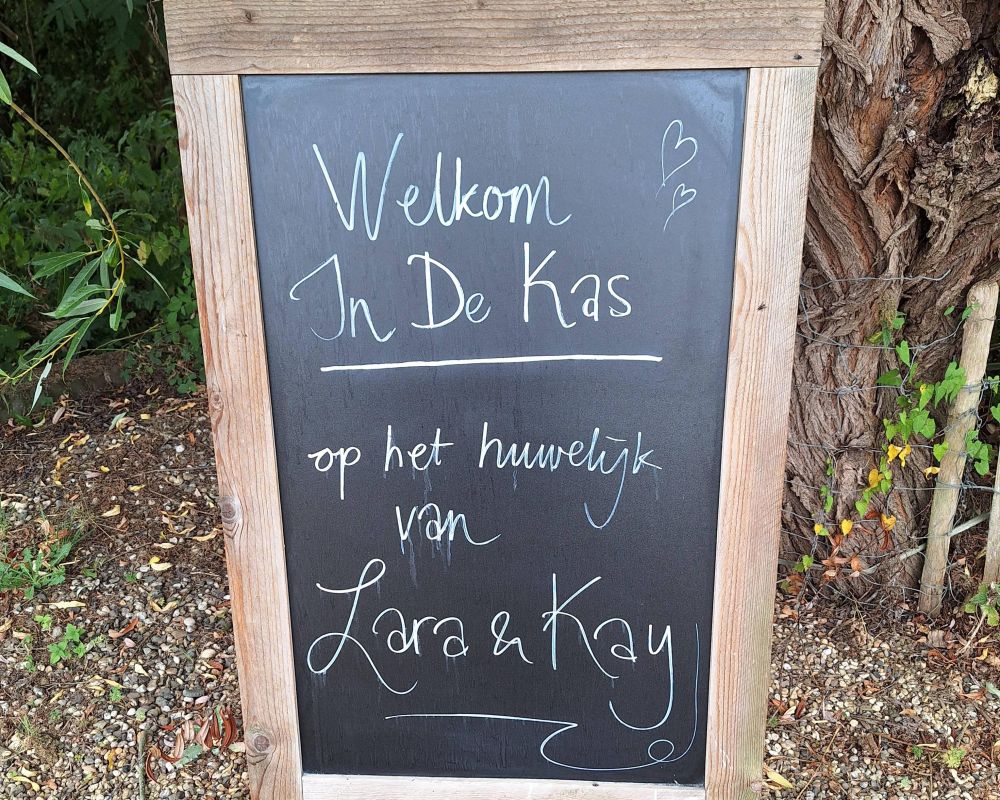 Welkom
In De Kas
op het huwelijk
van
Lara & Kay